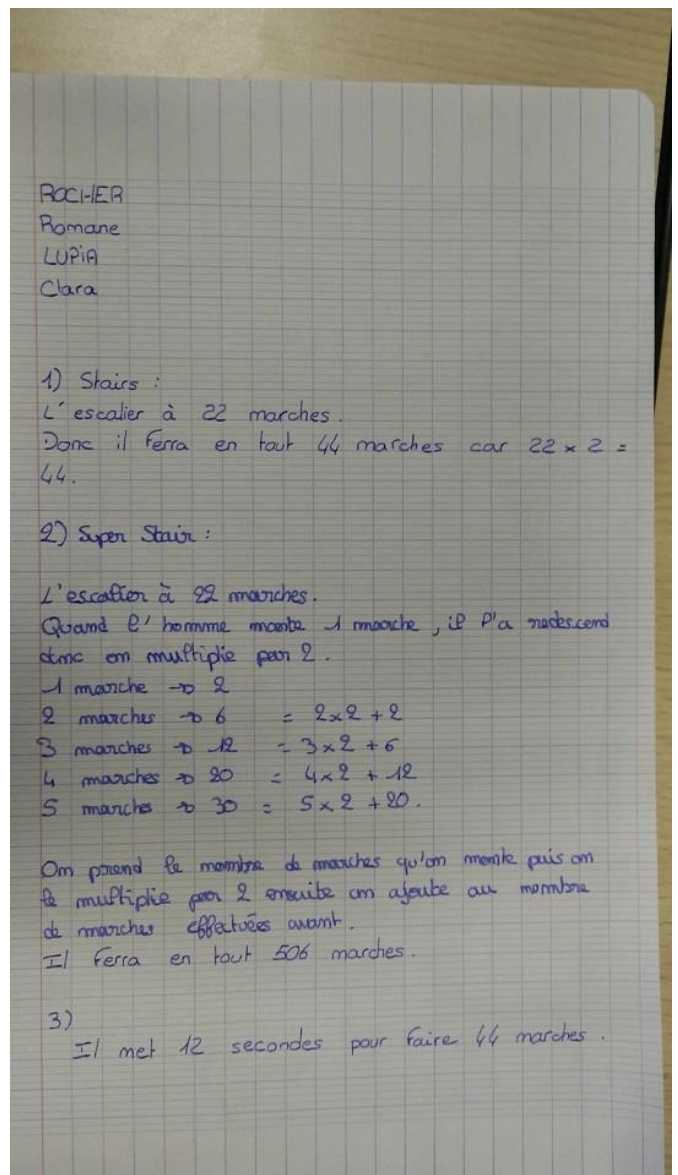 ROCHER
Romane
LUPiA
Clara
1) Stairs :
L'escalier à 22 marches.
Donc il ferra en tout 44 marches car 22 x 2 =
44.
2) Super Stair :
L'escalier à 22 marches.
Quand l'homme monte 1 marche, il l'a redescend
donc on multiplie par 2.
1 marche → 2
2 marches → 6 = 2x2 + 2
3 marches → 12 = 3x2 + 6
4 marches → 20 = 4x2 + 12
5 marches → 30 = 5x2 + 20.
On prend le nombre de marches qu'on monte puis on
le multiplie par 2 ensuite on ajoute au nombre
de marches effectuées avant.
Il ferra en tout 506 marches.
3)
Il met 12 secondes pour faire 44 marches.